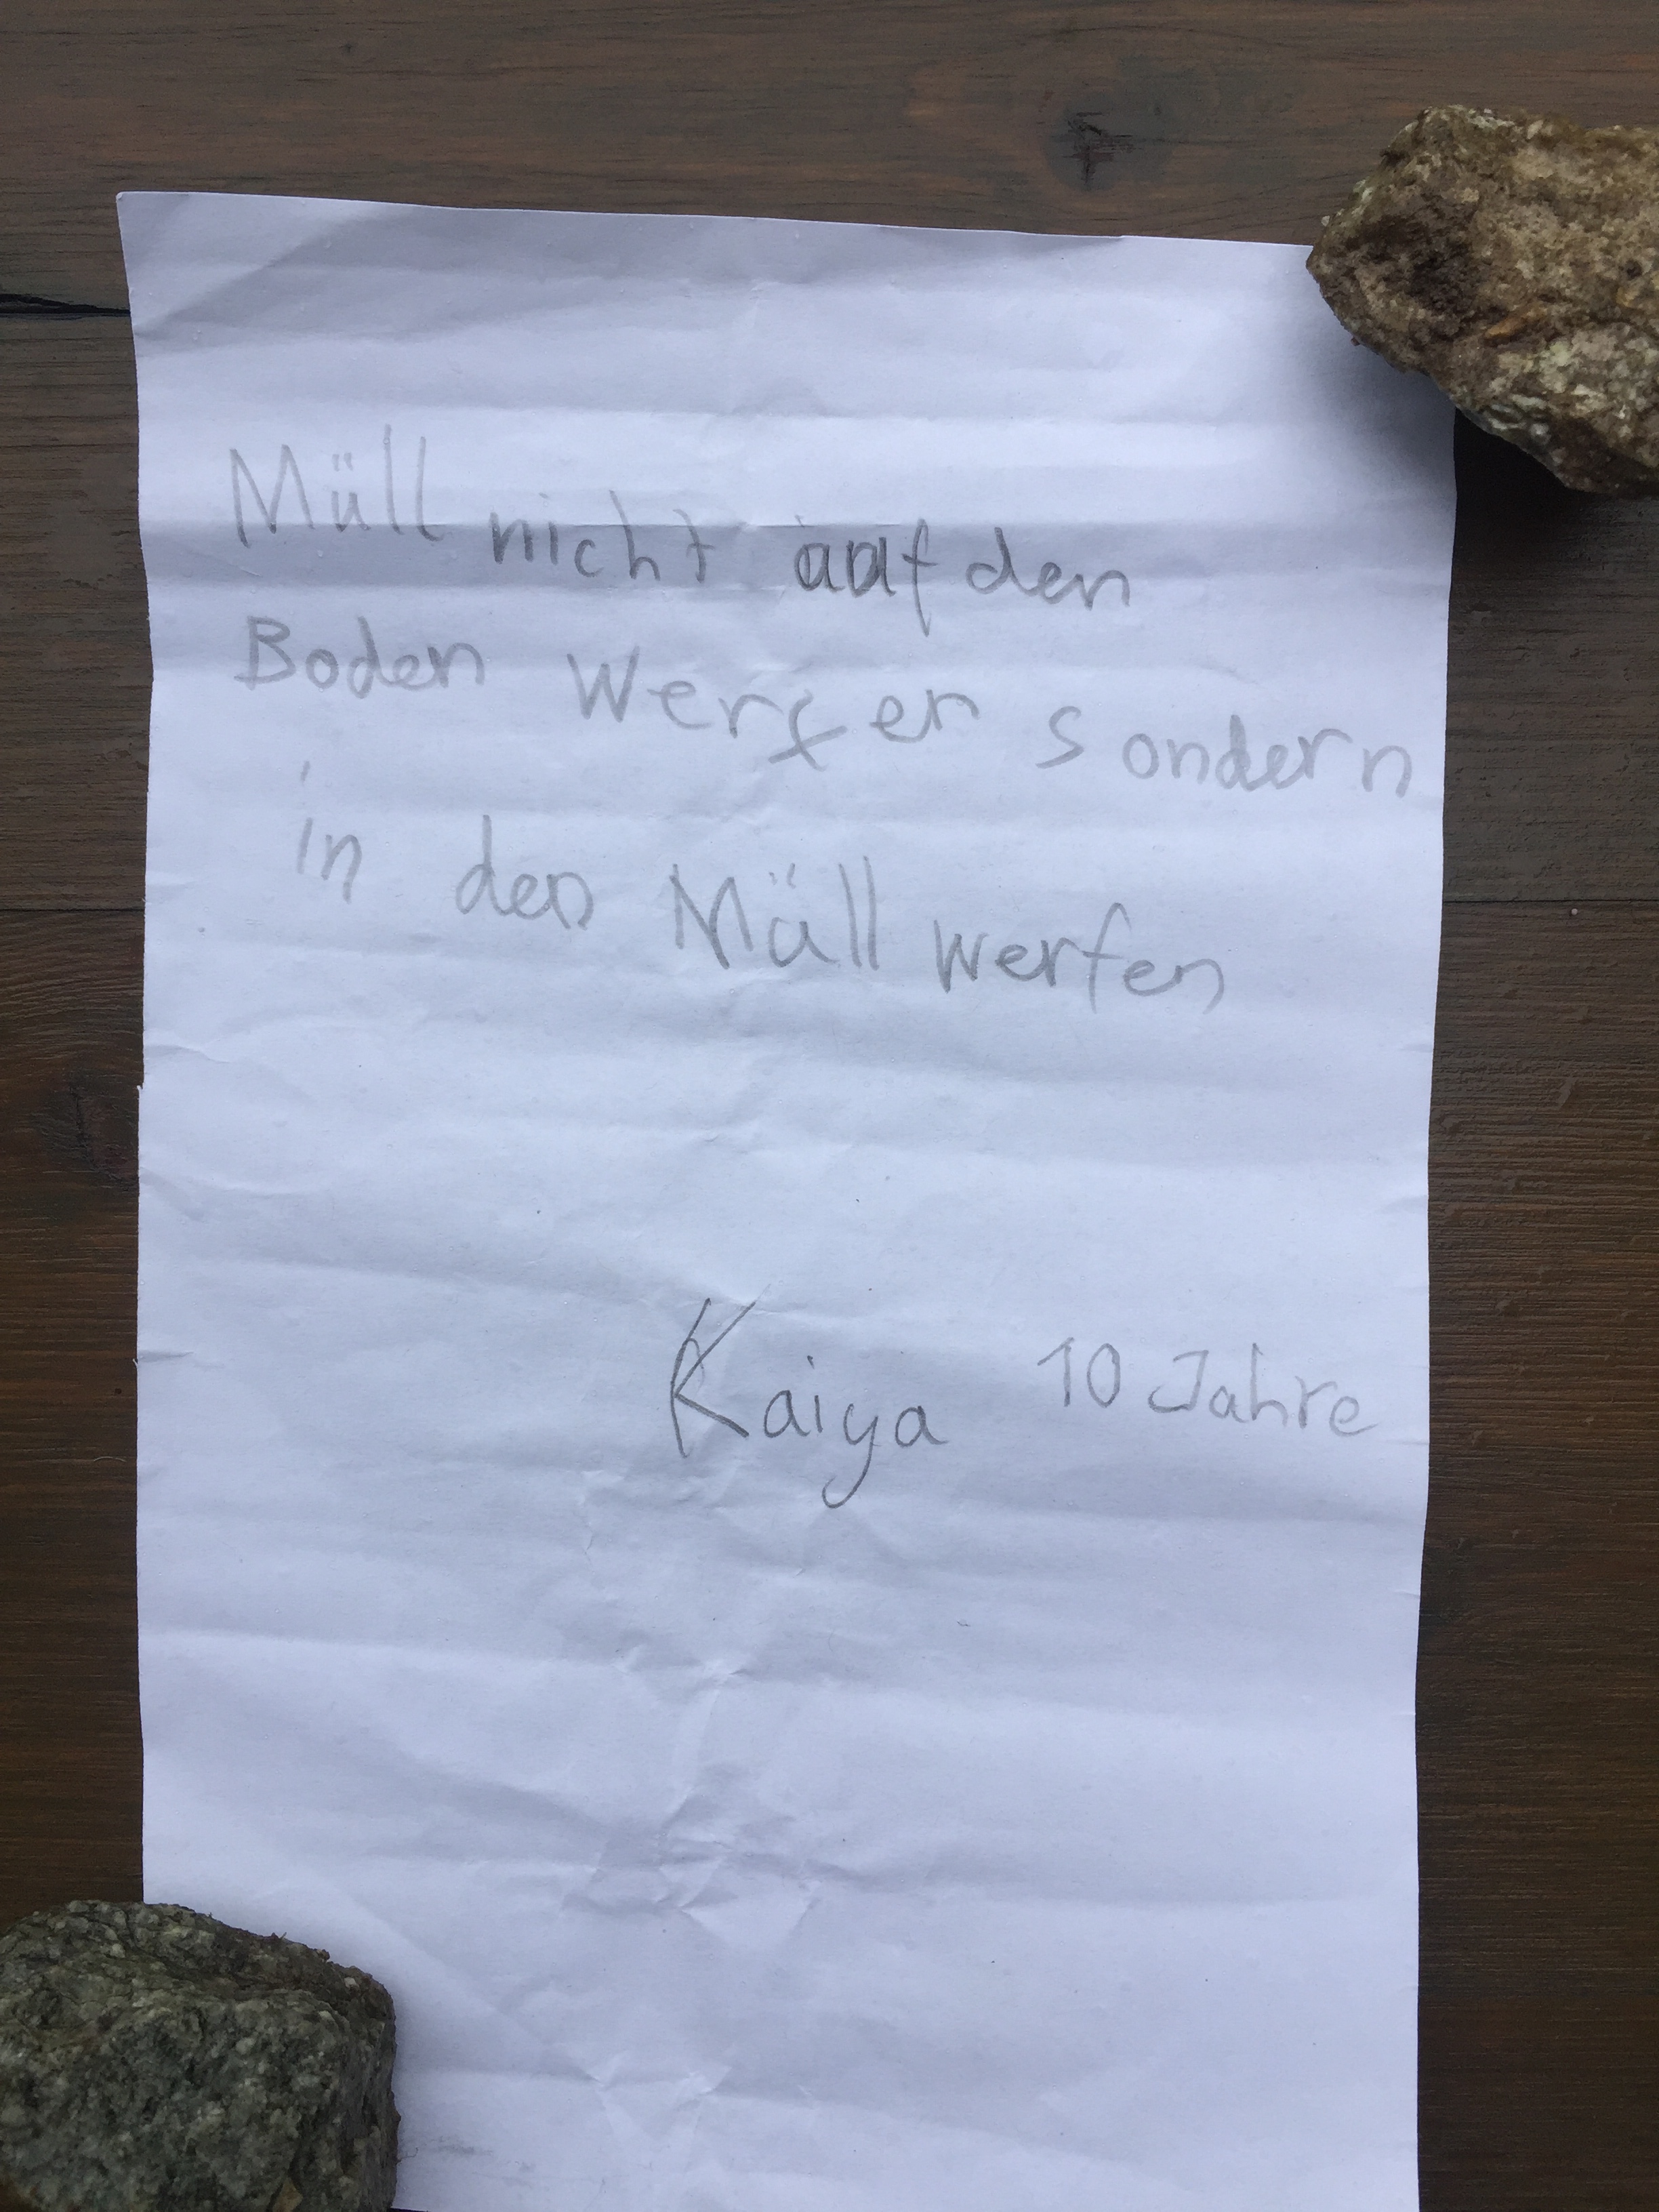 Müll nicht auf den
Boden Werfen sondern
in den Müll werfen
Kaiya 10 Jahre